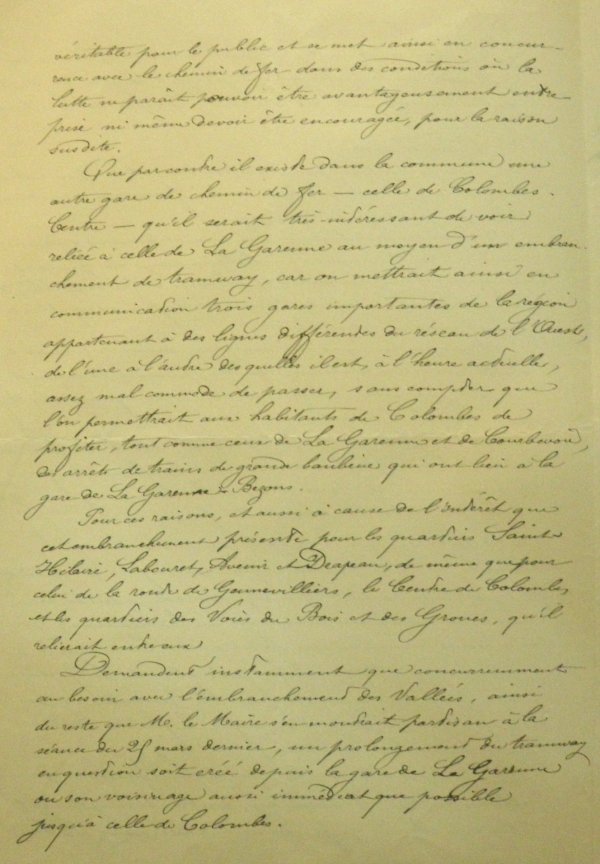 véritable pour le public et se met ainsi en concur-
rence avec le chemin de fer dans des conditions où la
lutte ne paraît pouvoir être avantageusement entre-
prise ni même devoir être encouragée, pour la raison
susdite.
Que par contre il existe dans la commune une
autre gare de chemin de fer — celle de Colombes-
Centre — qu'il serait très intéressant de voir
reliée à celle de La Garenne au moyen d'un embran-
chement de tramway, car on mettrait ainsi en
communication trois gares importantes de la région
appartenant à des lignes différentes du réseau de l'Ouest,
de l'une à l'autre desquelles il est, à l'heure actuelle,
assez mal commode de passer, sans compter que
l'on permettrait aux habitants de Colombes de
profiter, tout comme ceux de La Garenne et de Courbevoie,
des arrêts de trains de grande banlieue qui ont lieu à la
gare de La Garenne-Bezons.
Pour ces raisons, et aussi à cause de l'intérêt que
cet embranchement présente pour les quartiers Saint-
Hilaire, Labouret, Avenir et Drapeau, de même que pour
celui de la route de Gennevilliers, le Centre de Colombes,
et les quartiers des Voies du Bois et des Grouves, qu'il
relierait entre eux
Demandent instamment que concurremment
au besoin avec l'embranchement des Vallées, ainsi
du reste que M. le Maire s'en montrait partisan à la
séance du 25 mars dernier, un prolongement du tramway
en question soit créé depuis la gare de La Garenne
ou son voisinage aussi immédiat que possible
jusqu'à celle de Colombes.